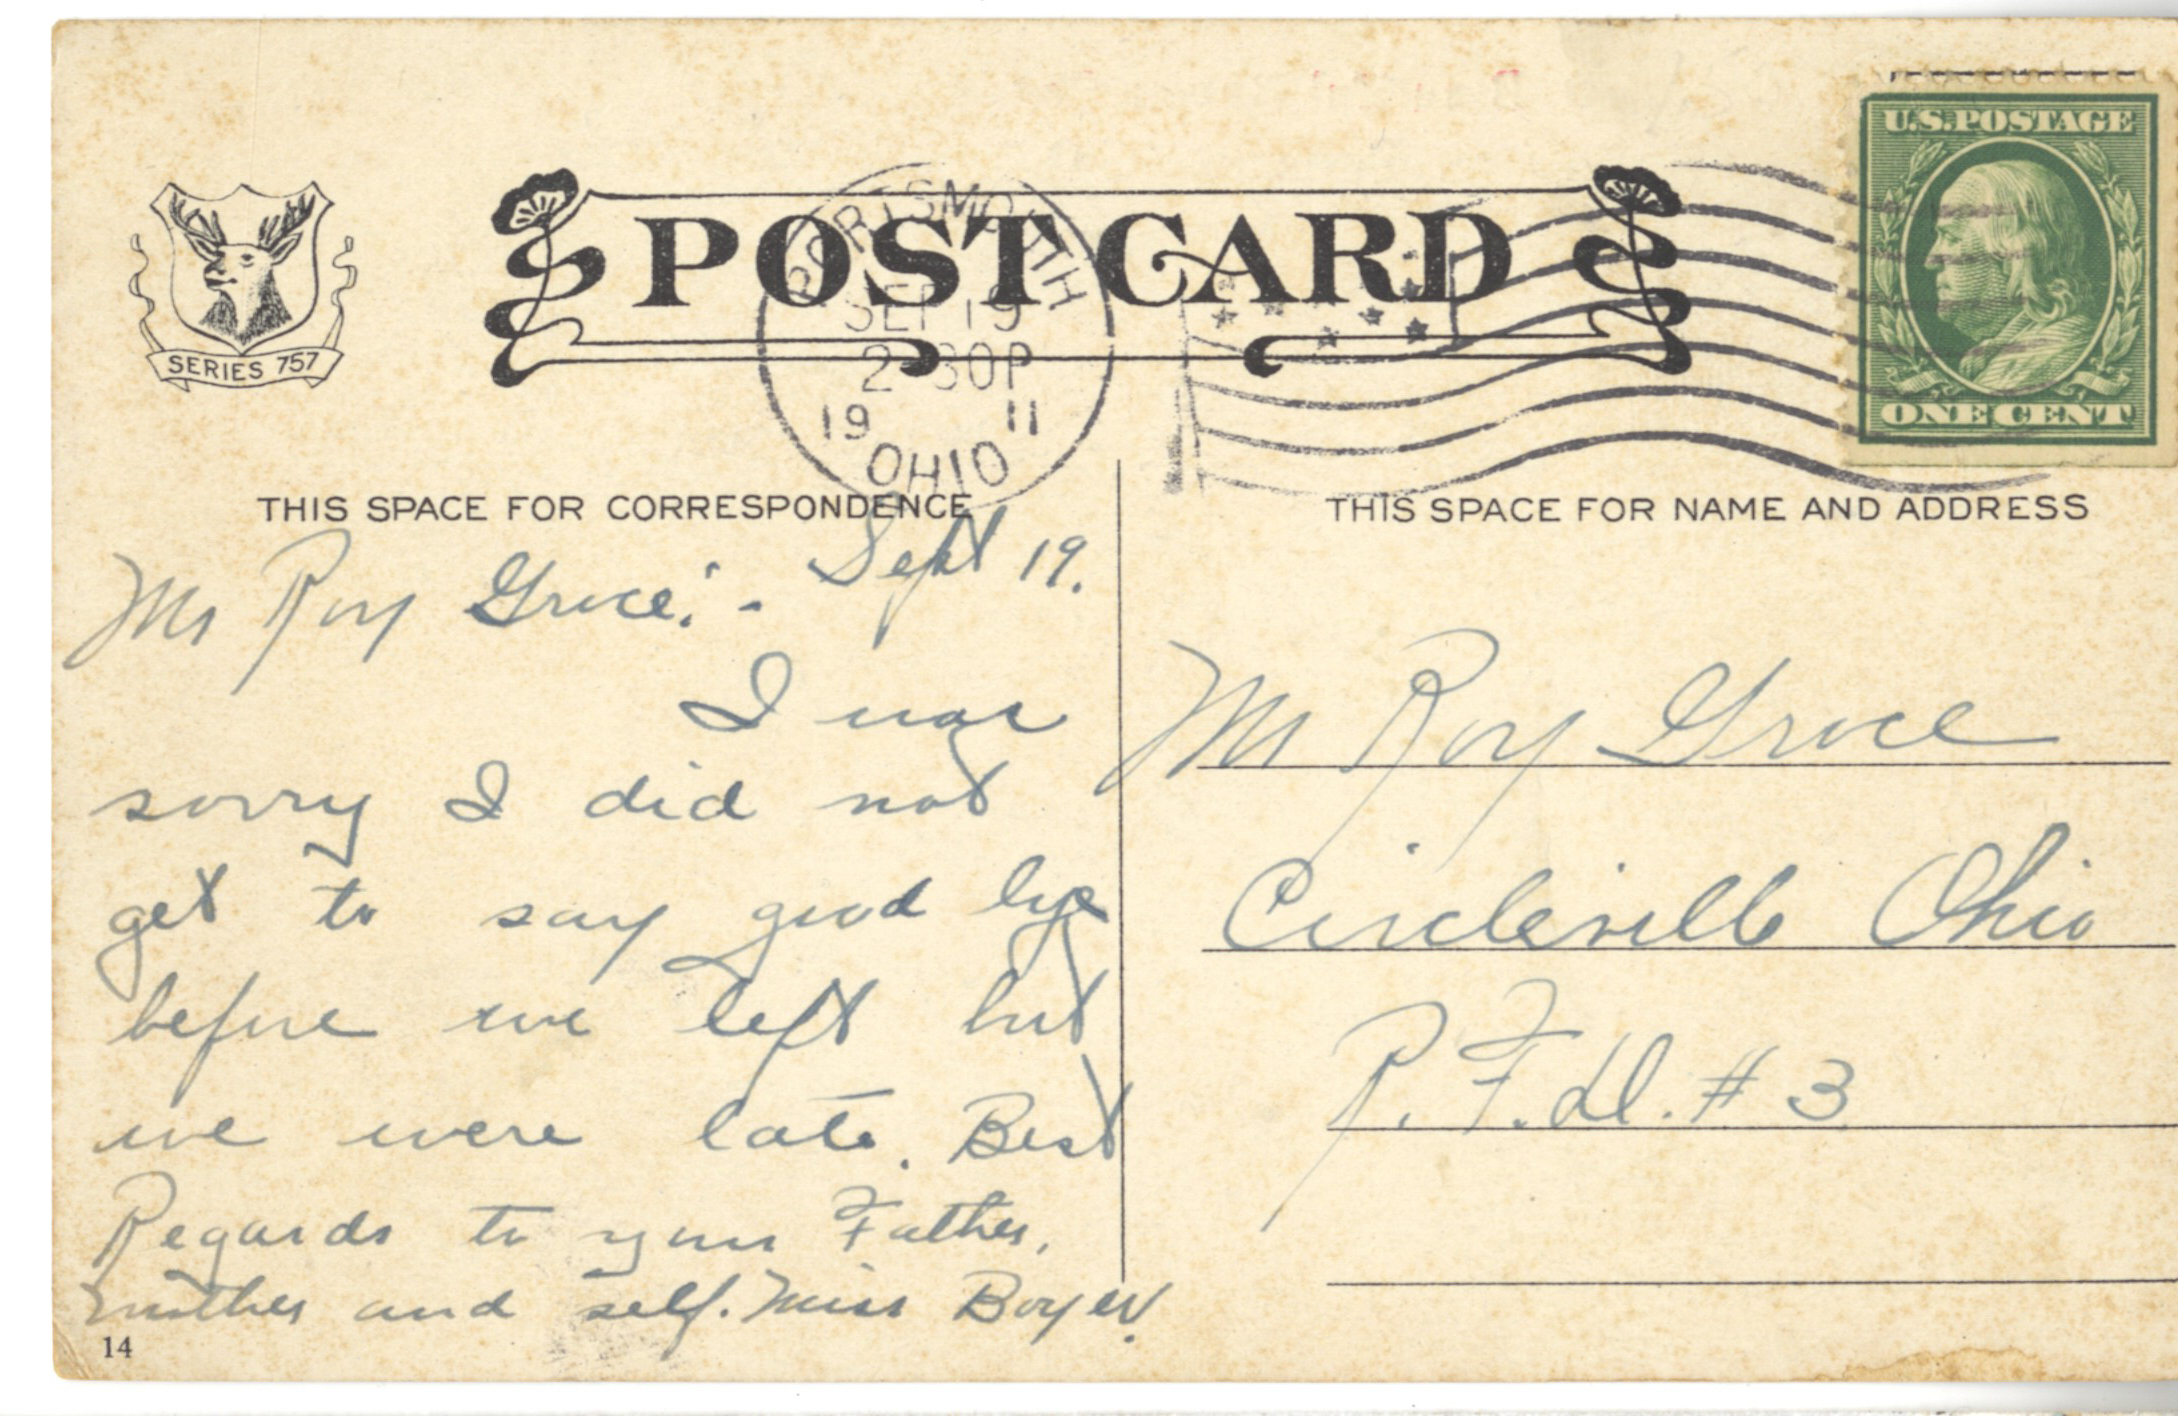 U.S. POSTAGE
POST CARD
PORTSMOUTH
SEP 19
2-30P
19 11
OHIO
SERIES 757
ONE CENT
THIS SPACE FOR CORRESPONDENCE
THIS SPACE FOR NAME AND ADDRESS
Sept 19.
Mr Roy Groce:-
I was
sorry I did not
get to say good bye
before we left but
we were late. Best
Regards to your Father,
mother and self. Miss Boyer.
14
Mr Roy Groce
Circleville Ohio
R.F.D. # 3